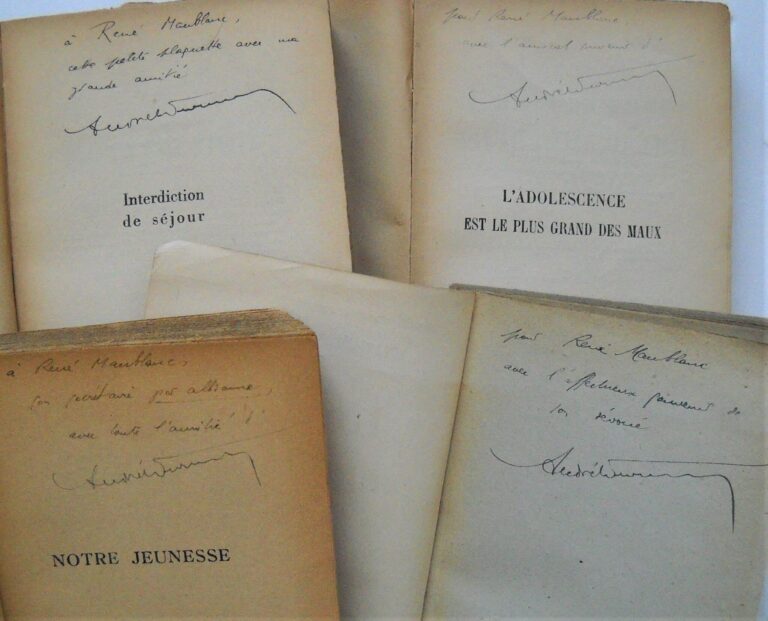 à René Maublanc,
cette petite plaquette avec ma
grande amitié
Interdiction
de séjour
pour René Maublanc,
avec l'amical souvenir d'
L'ADOLESCENCE
EST LE PLUS GRAND DES MAUX
à René Maublanc,
son secrétaire par alliance,
avec toute l'amitié d'
NOTRE JEUNESSE
pour René Maublanc
avec l'affectueux souvenir de
son dévoué